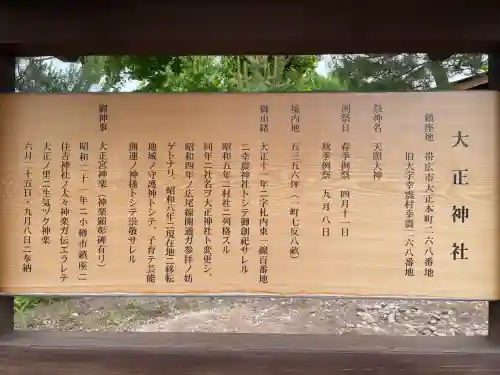 大正神社
鎮座地 帯広市大正本町二六八番地
旧大字幸震村幸震二六八番地
祭神名 天照大神
例祭日 春季例祭 四月十一日
秋季例祭 九月八日
境内地 五三五六坪(一町七反八畝)
御由緒 大正十一年二字札内東一線百番地
ニ幸震神社トシテ御創祀サレル
昭和五年二村社ニ列格スル
同年二社名ヲ大正神社ト変更シ、
昭和四年ノ広尾線開通ガ参拝ノ妨
ゲトナリ、昭和八年二現在地ニ移転
地域ノ守護神トシテ、子育テ芸能
開運ノ神様トシテ崇敬サレル
御神事 大正宮神楽(神楽顕彰碑有リ)
昭和二十一年二小樽市鎮座ニ
住吉神社ノ太々神楽ガ伝エラレテ
大正ノ里ニ生気ヅク神楽
六月二十五日・九月八日ニ奉納